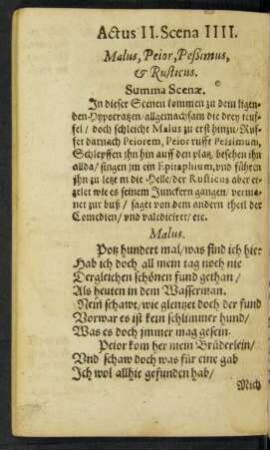 Actus II. Scena IIII.
Malus, Peior, Peßimus,
& Rusticus.
Summa Scenæ.
In dieser Scenen kommen zu dem ligen-
den Hypocratzen allgemachsam die drey teuf-
fel / doch schleicht Malus zu erst hinzu / Ruf-
fet darnach Peiorem, Peior rufft Pessimum,
Schlepffen jhn hin auff den platz, besehen jhn
allda / singen jm ein Epitaphium, und führen
jhn zu letzt in die Helle / der Rusticus aber er-
zelet wie es seinem Junckern gangen / verma-
net zur buß / saget von dem andern theil der
Comedien / und valediciret / etc.
Malus.
Potz hundert mal / was find ich hier
Hab ich doch all mein tag noch nie
Dergleichen schönen fund gethan /
Als heuten in dem Wasserman.
Nein schawt, wie glentzet doch der fund
Vorwar es ist kein schlimmer hund /
Was es doch jmmer mag gesein.
Peior kom her mein Brüderlein /
Vnd schaw doch was für eine gab
Ich wol allhie gefunden hab /
Mich